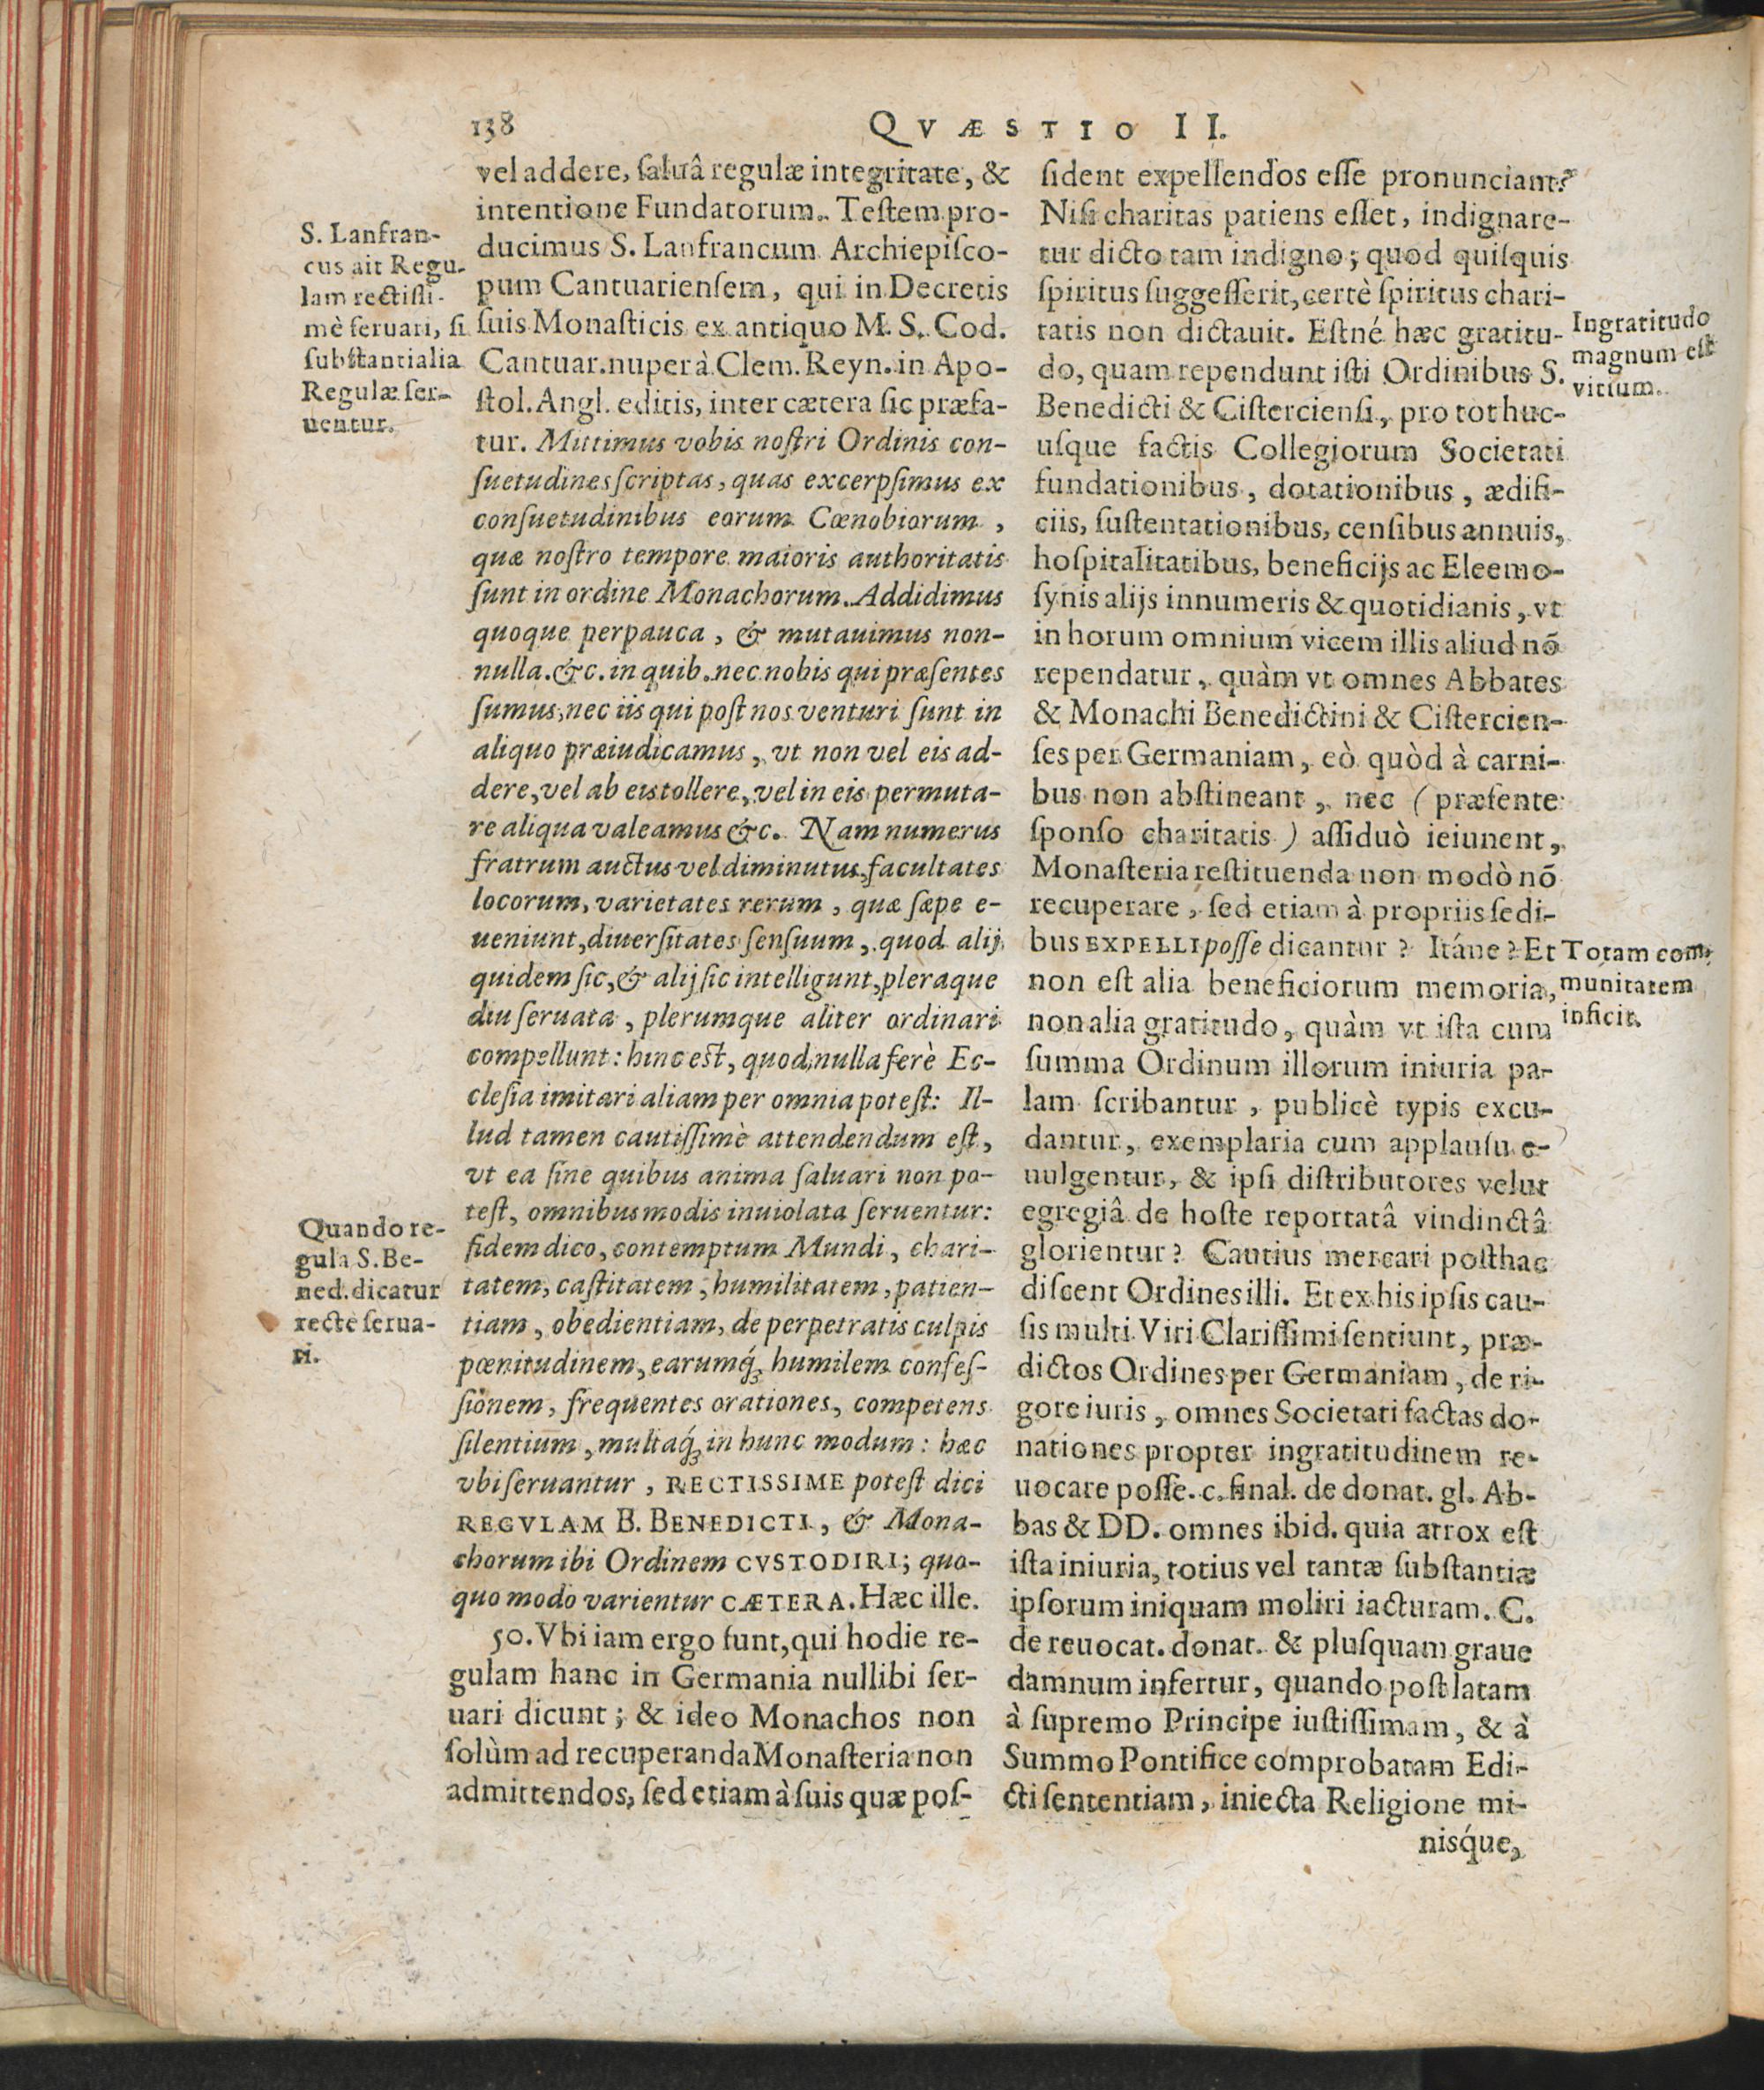 138
QVÆSTIO II.
S. Lanfran-
cus ait Regu-
lam rectissi-
mè seruari, si
substantialia
Regulæ ser-
uentur.
vel addere, saluâ regulæ integritate, &
intentione Fundatorum. Testem pro-
ducimus S. Lanfrancum Archiepisco-
pum Cantuariensem, qui in Decretis
suis Monasticis ex antiquo M. S. Cod.
Cantuar. nuper à Clem. Reyn. in Apo-
stol. Angl. editis, inter cætera sic præfa-
tur. Mittimus vobis nostri Ordinis con-
suetudines scriptas, quas excerpsimus ex
consuetudinibus eorum Cœnobiorum,
quæ nostro tempore maioris authoritatis
sunt in ordine Monachorum. Addidimus
quoque perpauca, & mutauimus non-
nulla. &c. in quib. nec nobis qui præsentes
sumus, nec iis qui post nos venturi sunt in
aliquo præiudicamus, vt non vel eis ad-
dere, vel ab eis tollere, vel in eis permuta-
re aliqua valeamus &c. Nam numerus
fratrum auctus vel diminutus, facultates
locorum, varietates rerum, quæ sæpe e-
ueniunt, diuersitates sensuum, quod alij
quidem sic, & alij sic intelligunt, pleraque
diu seruata, plerumque aliter ordinari
compellunt: hinc est, quod nulla ferè Ec-
clesia imitari aliam per omnia potest: Il-
lud tamen cautissimè attendendum est,
vt ea sine quibus anima saluari non po-
test, omnibus modis inuiolata seruentur:
fidem dico, contemptum Mundi, chari-
tatem, castitatem, humilitatem, patien-
tiam, obedientiam, de perpetratis culpis
pœnitudinem, earumq́ꝫ humilem confes-
sionem, frequentes orationes, competens
silentium, multaq́ꝫ in hunc modum: hæc
vbi seruantur, RECTISSIME potest dici
REGVLAM B. BENEDICTI, & Mona-
chorum ibi Ordinem CVSTODIRI; quo-
quo modo varientur CÆTERA. Hæc ille.
50. Vbi iam ergo sunt, qui hodie re-
gulam hanc in Germania nullibi ser-
uari dicunt; & ideo Monachos non
solùm ad recuperanda Monasteria non
admittendos, sed etiam à suis quæ pos-
Quando re-
gula S. Be-
ned. dicatur
recte serua-
ri.
sident expellendos esse pronunciant?
Nisi charitas patiens esset, indignare-
tur dicto tam indigno; quod quisquis
spiritus suggesserit, certè spiritus chari-
tatis non dictauit. Estné hæc gratitu-
do, quam rependunt isti Ordinibus S.
Benedicti & Cisterciensi, pro tot huc-
usque factis Collegiorum Societati
fundationibus, dotationibus, ædifi-
ciis, sustentationibus, censibus annuis,
hospitalitatibus, beneficijs ac Eleemo-
synis alijs innumeris & quotidianis, vt
in horum omnium vicem illis aliud nō
rependatur, quàm vt omnes Abbates
& Monachi Benedictini & Cistercien-
ses per Germaniam, eò quòd à carni-
bus non abstineant, nec (præsente
sponso charitatis) assiduò ieiunent,
Monasteria restituenda non modò nō
recuperare, sed etiam à propriis sedi-
bus EXPELLI posse dicantur? Itáne? Et
non est alia beneficiorum memoria,
non alia gratitudo, quàm vt ista cum
summa Ordinum illorum iniuria pa-
lam scribantur, publicè typis excu-
dantur, exemplaria cum applausu e-
uulgentur, & ipsi distributores velut
egregiâ de hoste reportatâ vindictâ
glorientur? Cautius mercari posthac
discent Ordines illi. Et ex his ipsis cau-
sis multi Viri Clarissimi sentiunt, præ-
dictos Ordines per Germaniam, de ri-
gore iuris, omnes Societati factas do-
nationes propter ingratitudinem re-
uocare posse. c. final. de donat. gl. Ab-
bas & DD. omnes ibid. quia atrox est
ista iniuria, totius vel tantæ substantiæ
ipsorum iniquam moliri iacturam. C.
de reuocat. donat. & plusquam graue
damnum infertur, quando post latam
à supremo Principe iustissimam, & à
Summo Pontifice comprobatam Edi-
cti sententiam, iniecta Religione mi-
nisq́ue,
Ingratitudo
magnum est
vitium.
Totam com-
munitatem
inficit.